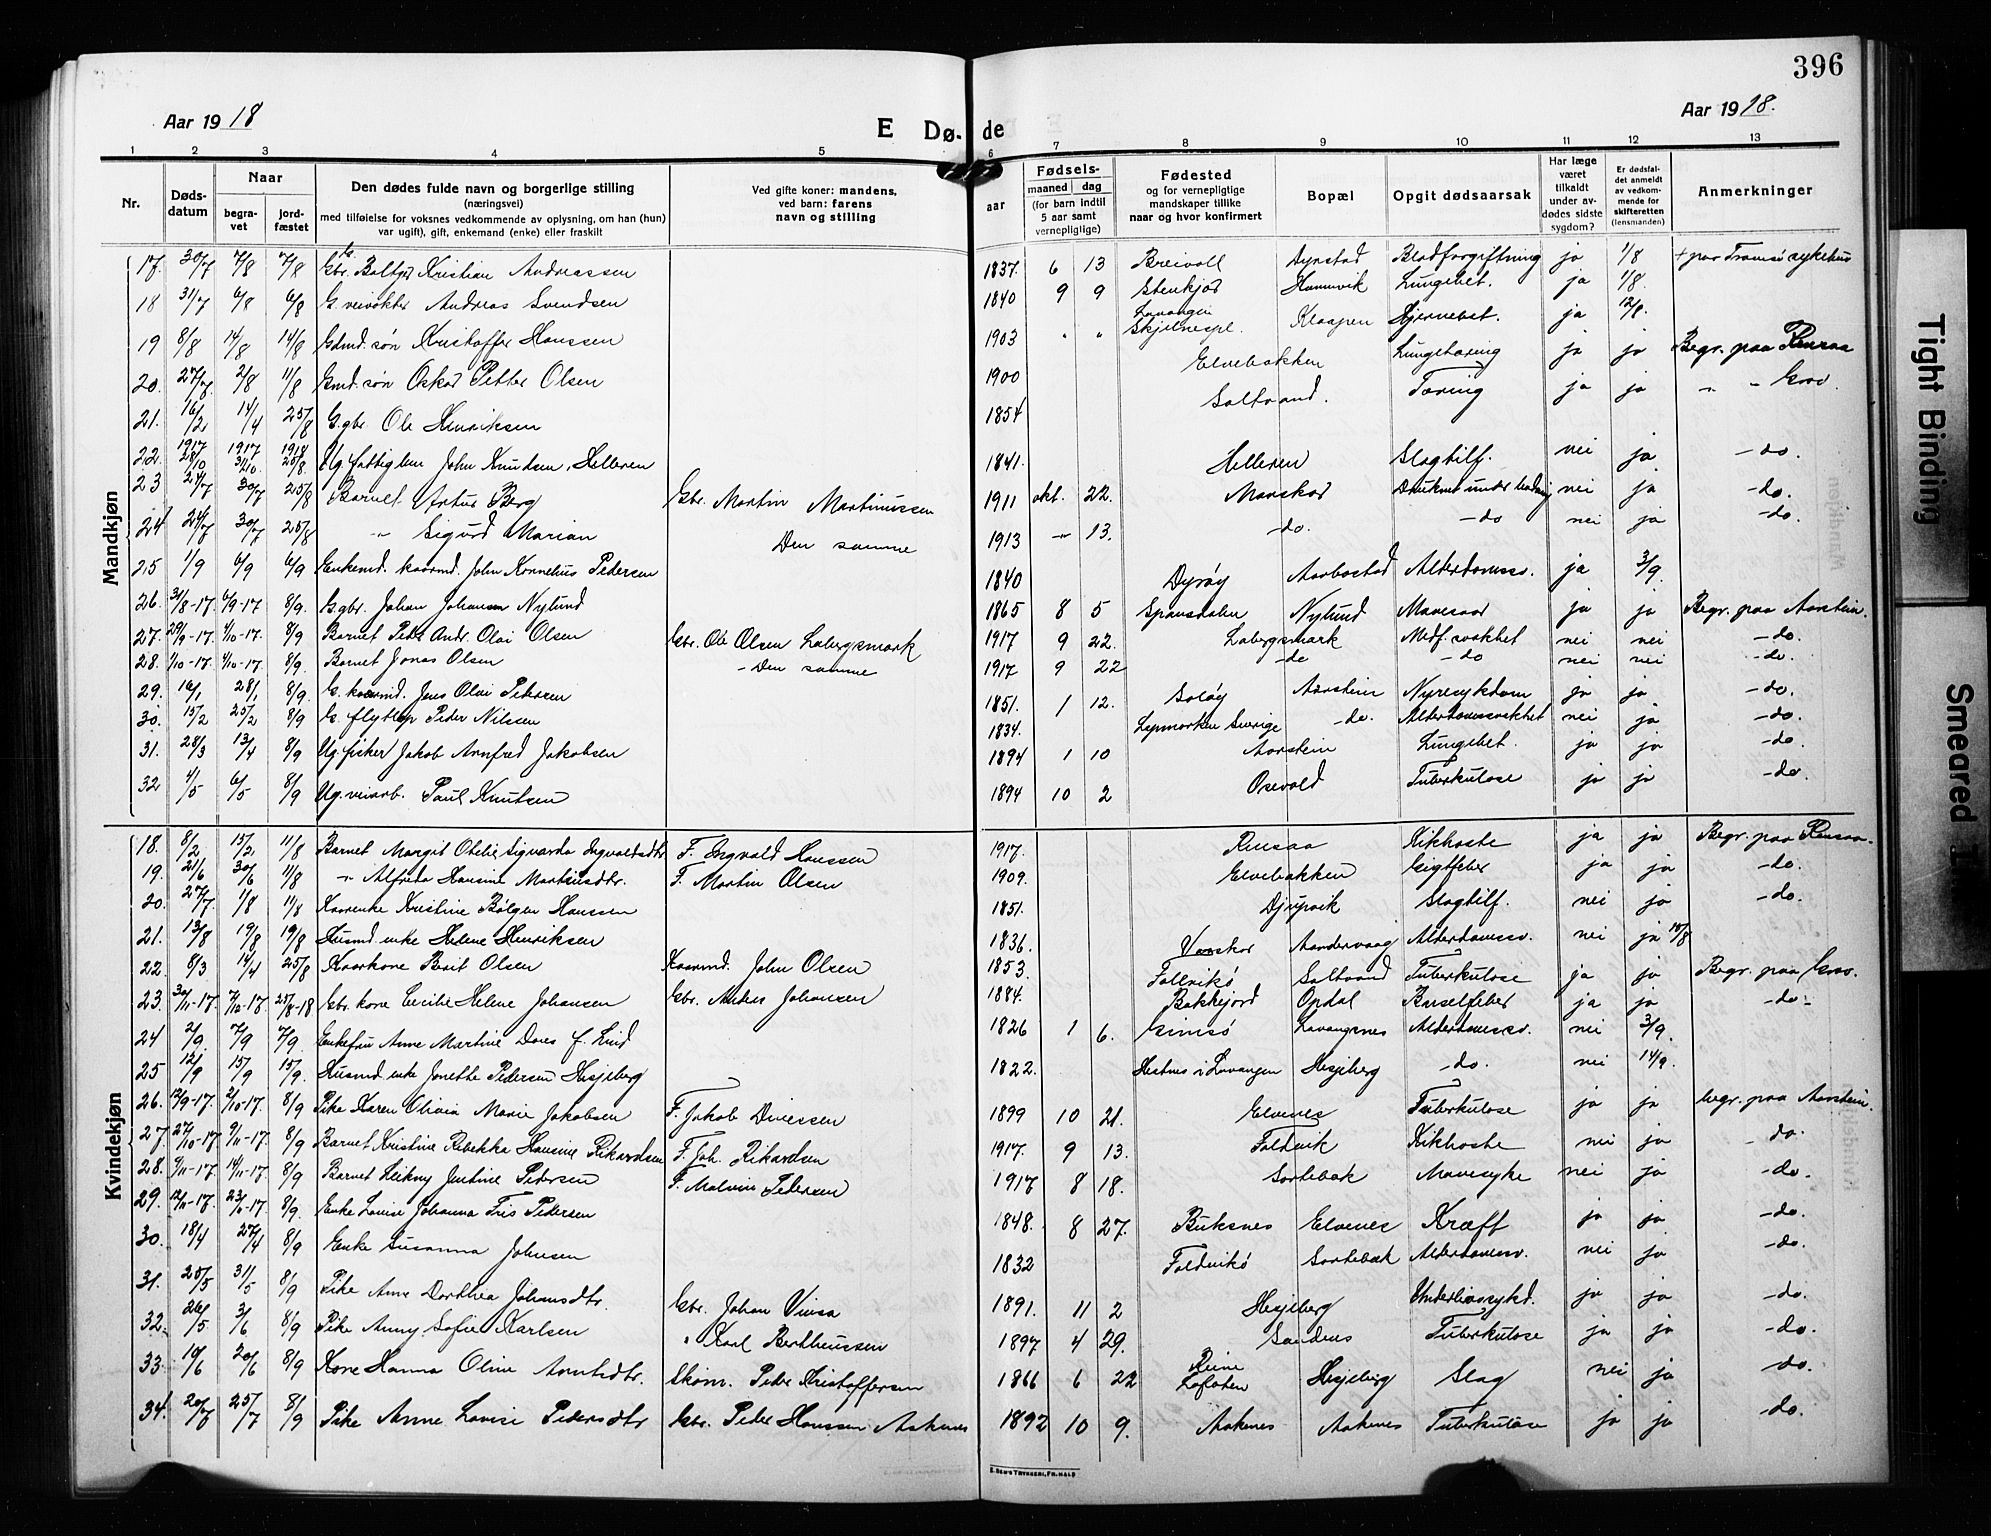 396
Aar 19 18
E Dø- de
Aar 19 18.
1 2 3 4 5 6 7 8 9 10 11 12 13
Nr.
Døds-
datum
Naar
begra-
vet
jord-
fæstet
Den dødes fulde navn og borgerlige stilling
(næringsvei)
med tilføielse for voksnes vedkommende av oplysning, om han (hun)
var ugift), gift, enkemand (enke) eller fraskilt
Ved gifte koner: mandens,
ved barn: farens
navn og stilling
Fødsels-
aar
maaned dag
(for barn indtil
5 aar samt
vernepligtige)
Fødested
og for vernepligtige
mandskaper tillike
naar og hvor konfirmert
Bopæl
Opgit dødsaarsak
Har læge
været
tilkaldt
under av-
dødes sidste
sygdom?
Er dødsfal-
det anmeldt
av vedkom-
mende for
skifteretten
(lensmanden)
Anmerkninger
Mandkjøn
17. 30/7 7/8 7/8 Gbr. Kristian Andreassen 1837. 6 13 Breivoll Dyrstad Blodforgiftning ja 1/8 + paa Tromsø sykehus
18 31/7 6/8 6/8 G. veivokter Andreas Svendsen 1840 9 9 Stenkjær Hamnvik Lungebet. ja 1/8.
19 8/8 14/8 14/8 Gdmd. søn Kristoffer Hanssen 1903 " " Lavangen Skjelnespl. Kraapen Hjernebet. ja 12/8.
20. 27/7 2/8 11/8 Gmd. søn Oskar Petter Olsen 1900 Elvebakken Lungetæring ja ja Begr. paa Rensaa
21. 16/2 14/4 25/8 G. gbr. Ole Henriksen 1854 Saltvand. Tæring ja ja " " Grov.
22. 1917 28/10 1917 3/10 1918 25/8. Ug. fattiglem John Knudsen, Helleren 1841. Helleren Slagtilf. nei ja - do.
23 24/7 30/7 25/8 Barnet Artur Berg Gbr. Martin Martinussen 1911 okt. 22. Marskar Druknet under badning nei ja - do.
24 24/7 30/7 25/8 " Sigurd Marian Den samme 1913 " 13. - do. - do nei ja - do.
25 1/9 6/9 6/9 Enkemd. kaarmd. John Kornelius Pedersen 1840 Dyrøy Aarbostad Alderdomssv. ja 3/9.
26. 31/8-17. 6/9-17 8/9. G. gbr. Johan Johansen Nylund 1865 8 5 Spansdalen Nylund Mavesaar ja ja Begr. paa Aarstein.
27. 29/9-17. 4/10-17. 8/9 Barnet Peder Andr. Olai Olsen Gbr. Ole Olsen Labergsmark 1917 9 22. Labergsmark Medf. svakhet nei nei - do.
28. 1/10-17. 4/10-17. 8/9. Barnet Jonas Olsen - Den samme 1917 9 22 - do - do nei nei - do.
29. 16/1 28/1 8/9. G. kaarmd. Jens Olai Pedersen 1851. 1 12. Soløy Aarstein Nyresykdom ja ja - do.
30. 15/2 25/2 8/9 G. flytlap Peder Nilssen 1834. Lapmarken Sverige - do. Alderdomssvakhet nei ja - do.
31. 28/3 13/4 8/9 Ug. fisker Jakob Arnfred Jakobsen 1894 1 10 Aarstein Lungebet. ja ja - do.
32 4/5 6/5 8/9 Ug. veiarb. Paul Knutsen 1894 10 2 Osevold Tuberkulose ja ja - do.
Kvindekjøn
18. 8/2 15/2 11/8 Barnet Margit Otelie Sigvarda Ingvaldsdtr. F. Ingvald Hanssen 1917. Rensaa Kikhoste ja ja Begr. paa Rensaa.
19. 21/6 30/6 11/8 " Alfreda Hansine Martinsdtr. F. Martin Olsen 1909. Elvebakken Gigtfeber ja ja - do.
20. 27/7. 1/8 11/8 Kaarenke Kristine Bølgen Hanssen 1851. Djupvik Slagtilf. nei ja - do.
21. 13/8 19/8 19/8 Husmd. enke Helene Henriksen 1836. Vanskar Aandervaag Alderdomssv. nei ja 15/8
22. 8/3 14/4 25/8 Kaarkone Berit Olsen Kaarmd. John Olsen 1853. Follvikø Saltvand Tuberkulose ja ja Begr. paa Grov.
23. 30/11-17. 7/12-17. 25/8-18 Gbr. kone Cecilie Helene Johansen Gbr. Anders Johansen 1884. Bakkejord Opdal Barselfeber ja ja - do -
24 2/9. 7/9 7/9 Enkefru Anne Martine Dores f. Lind 1826 1 6. Gimsø Lavangsnes Alderdomssv. nei 3/9.
25 12/9 15/9 15/9. Husmd. enke Jonetha Pedersen Hesjeberg 1822. Hestnes i Lavangen Hesjeberg - do. nei 14/9.
26. 12/9-17. 2/10-17. 8/9 Pike Karen Olivia Marie Jakobsen F. Jakob Dinessen 1899 10 21. Elvenes Tuberkulose ja ja begr. paa Aarstein.
27. 27/10-17. 9/11-17. 8/9 Barnet Kristine Rebekka Hansine Rikardsen F. Joh. Rikardsen 1917. 9 13. Foldvik Kikhoste nei ja - do.
28. 9/11-17. 14/11-17. 8/9 Barnet Leikny Jentine Pedersen F. Malvin Pedersen 1917 8 18. Sortebæk Mavesyke nei ja - do.
29. 12/11-17. 23/11-17. 8/9. Enke Lovise Johanna Fris Pedersen 1848. 8 27. Buksnes Elvenes Kræft ja ja - do.
30. 18/4 27/4 8/9 Enke Susanna Johnsen 1832 Foldvikø Sortebæk Alderdomssv. nei ja - do.
31. 25/5 31/5 8/9 Pike Anne Dorthea Johansdtr. Gbr. Johan Vinsa 1891. 11 2 Hesjeberg Underlivssykd. ja ja - do.
32. 26/5 3/6 8/9 Pike Anny Sofie Karlsen " Karl Berthinussen 1897 4 29. Sandnes Tuberkulose ja ja - do.
33. 10/6 20/6 8/9 Kone Hanna Oline Arntsdtr. Skom. Peder Kristoffersen 1866 6 22 Reine Lofoten Hesjeberg Slag nei ja - do.
34. 20/7 25/7 8/9 Pike Anne Lovise Pedersdtr Gbr. Peder Hanssen Aakenes 1892 10 9. Aakenes Aakenes Tuberkulose ja ja - do.
E. SEM'S TRYKKERI, FR.HALD
Tight Binding
Smeared I